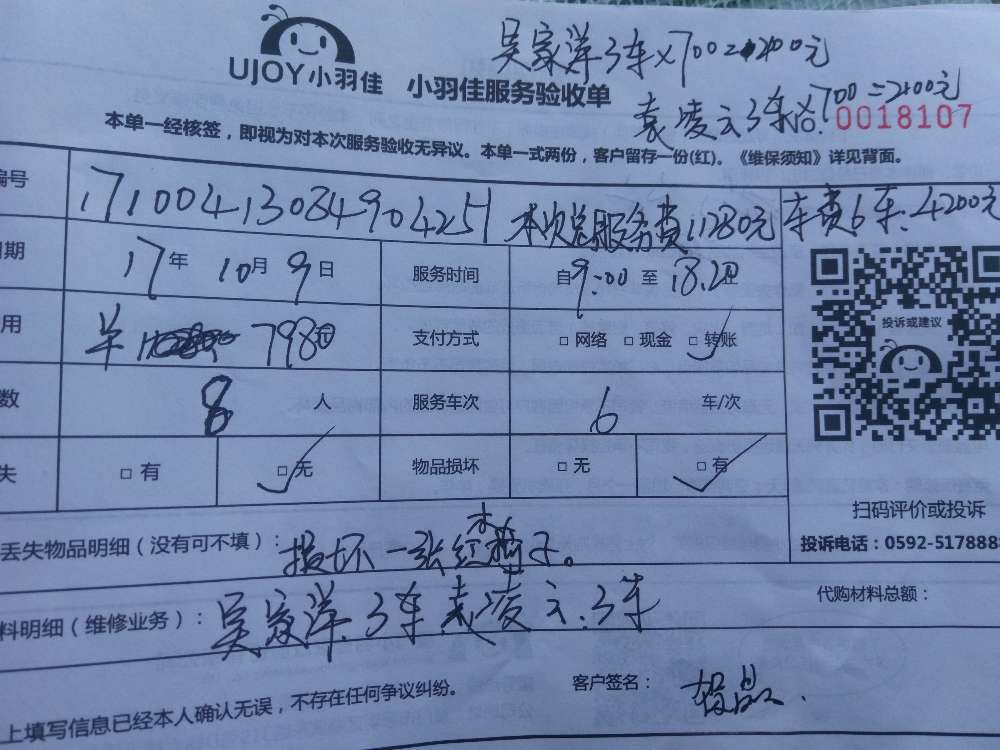 吴家洋3车×700=2100元
UJOY小羽佳 小羽佳服务验收单
袁凌云3车×700=2100元
NO. 0018107
本单一经核签，即视为对本次服务验收无异议。本单一式两份，客户留存一份(红)。《维保须知》详见背面。
编号 17100413084904251 本次总服务费11280元 车费6车:4200元
期 17年 10月 9日 服务时间 自9:00 至 18.20止
用 798元 支付方式 □ 网络 □ 现金 □ 转账
投诉或建议
数 8 人 服务车次 6 车/次
失 □ 有 □ 无 物品损坏 □ 无 □ 有
扫码评价或投诉
丢失物品明细（没有可不填）： 损坏一张红木椅子。
投诉电话：0592-5178888
代购材料总额：
料明细（维修业务）： 吴家洋.3车袁凌云.3车
客户签名：
上填写信息已经本人确认无误，不存在任何争议纠纷。